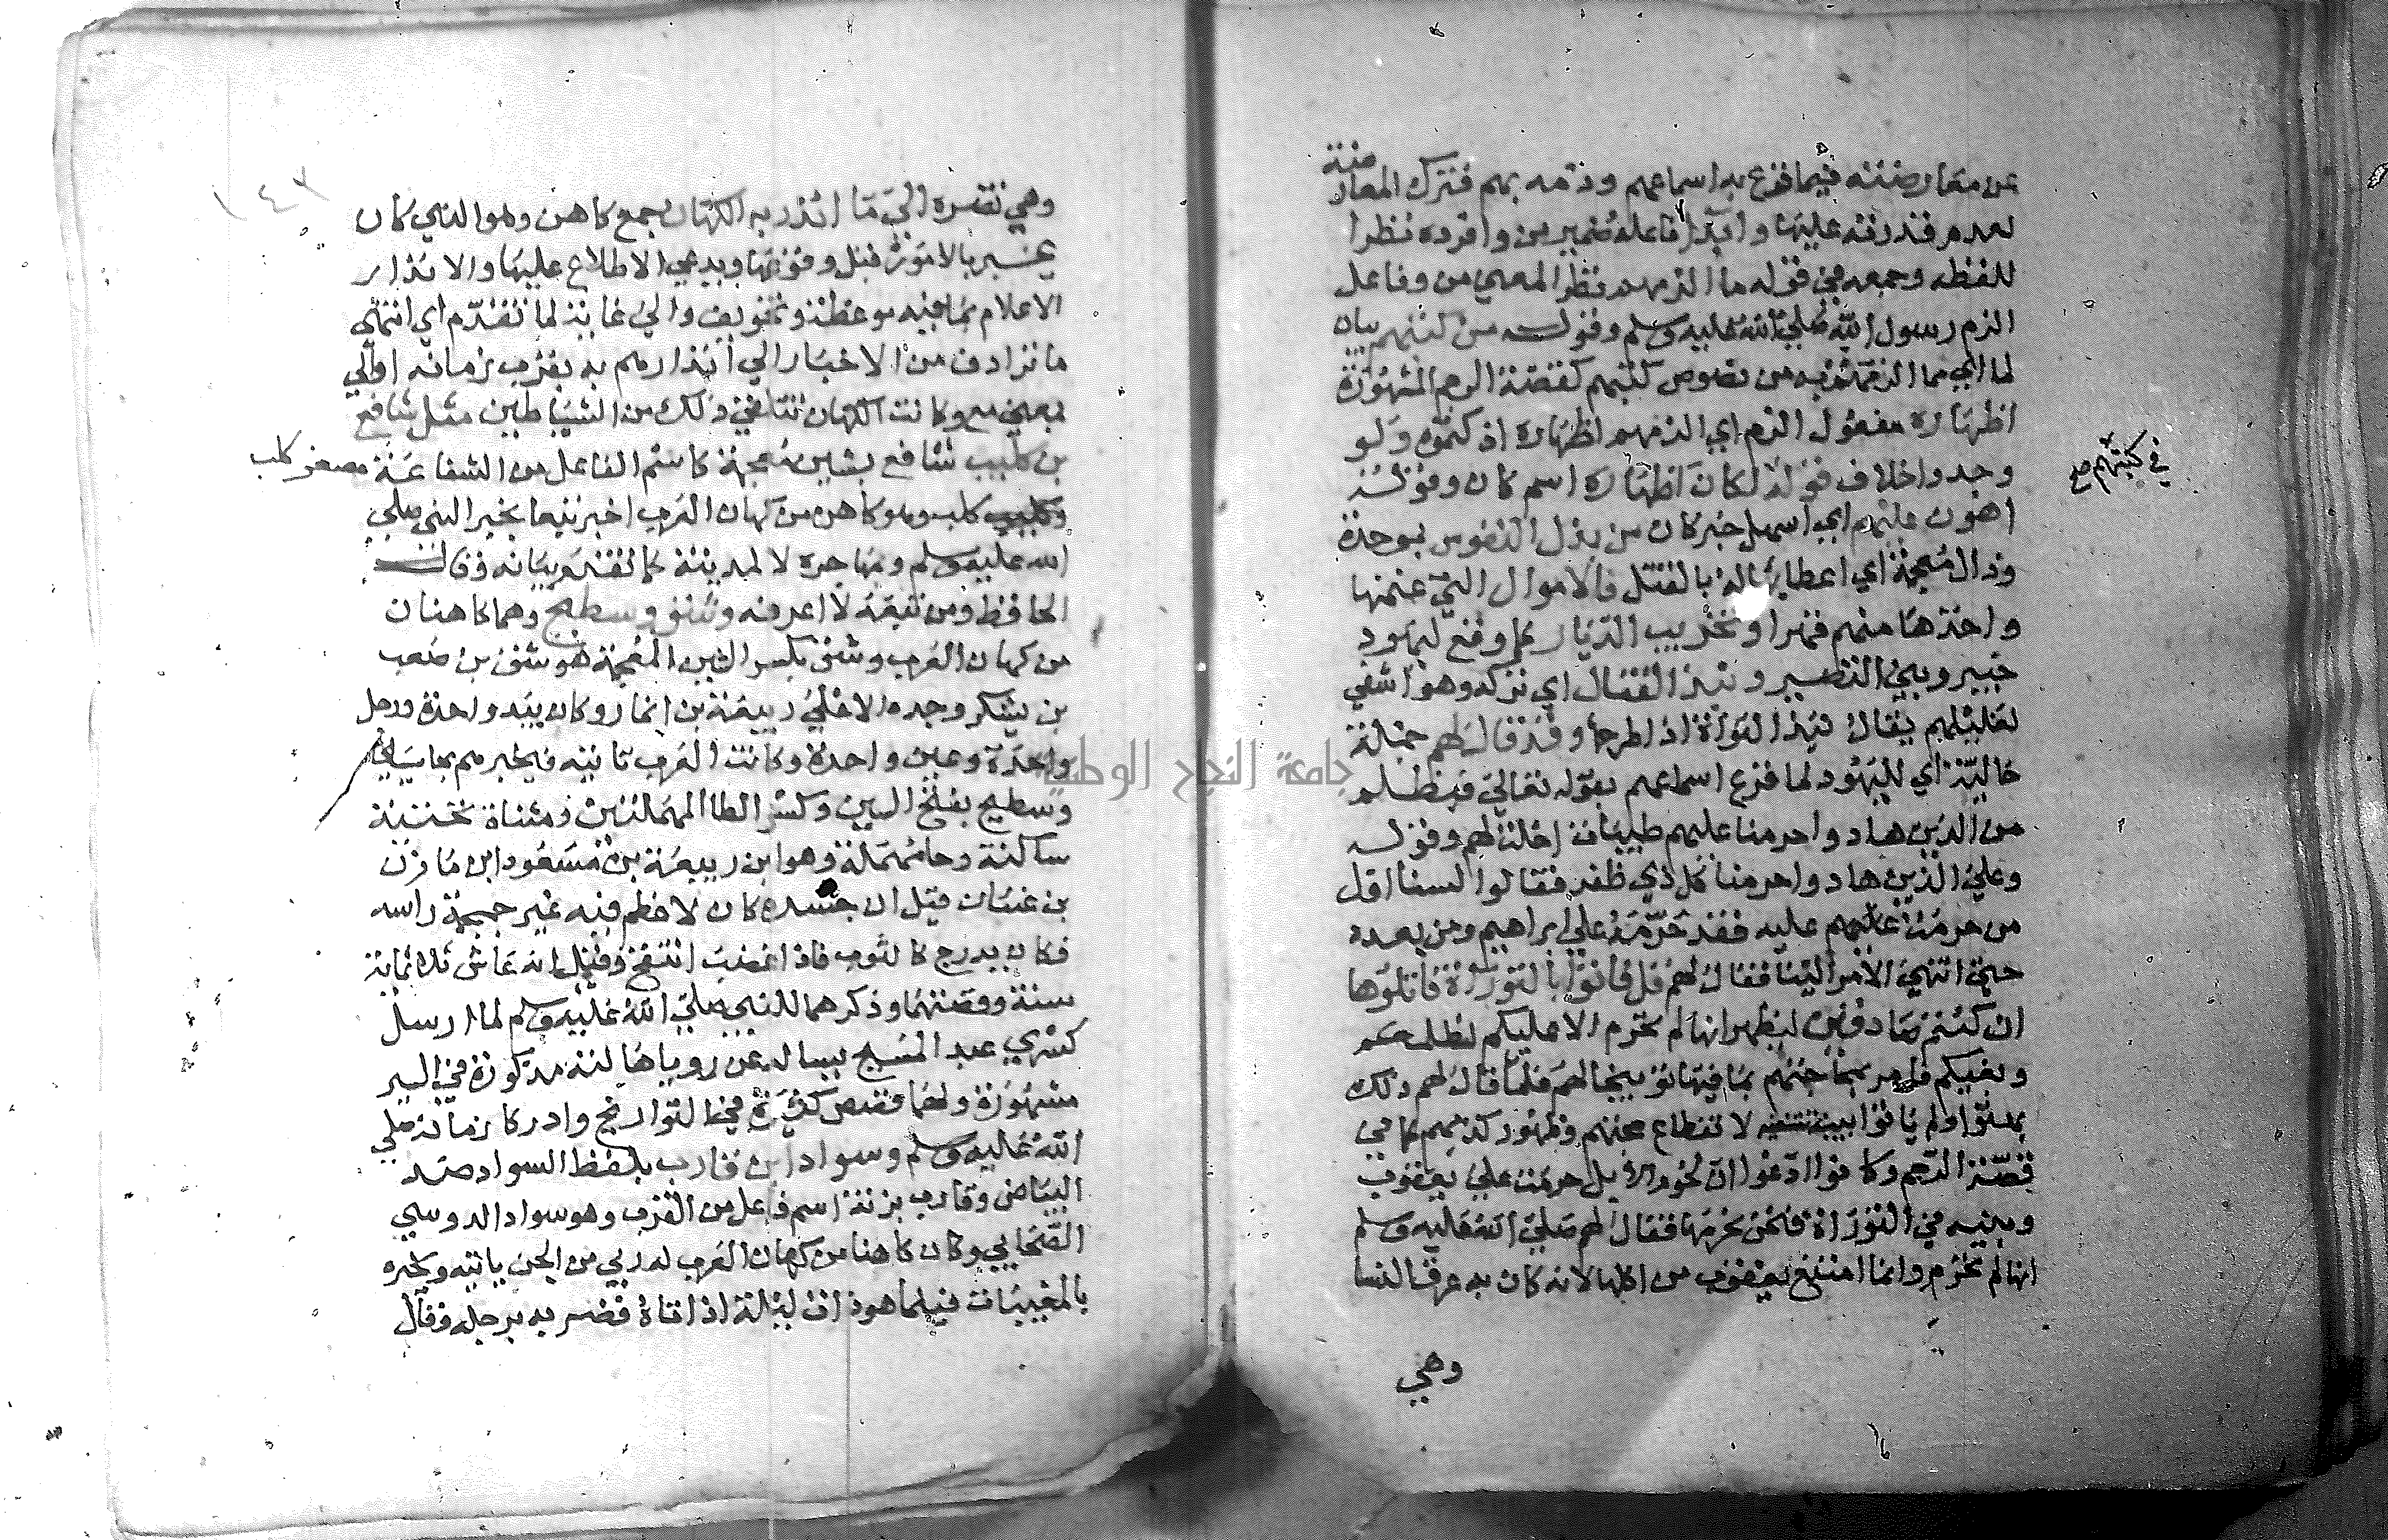 عن معارضته فيما قرع به اسماعهم وذمه بهم فترك المعارضة
لعدم قدرته عليها وابدا فاعله ضمير من وافرده نظرا
للفظه وجمعه في قوله ما الزمهم نظر المعنى من وفاعل
الزم رسول الله صلى الله عليه وسلم وقوله من كتبهم بيان
لما اي مما الزمهم به من نصوص كتبهم كقصة الرجم المشهورة
اظهاره مفعول الزم اي الزمهم اظهاره اذ كتموه ولو
في كتبهم صح
وجدوا خلاف قوله لكان اظهاره اسم كان وقوله
اهون عليهم اي اسهل خبر كان من بذل النفوس بموحدة
وذال معجمة اي اعطايها له بالقتل فالاموال التي غنمها
واخذها منهم قهرا وتخريب الديار كما وقع ليهود
خيبر وبني النضير ونبذ القتال اي تركه وهو اشفى
لغليلهم يقال نبذ النواة اذا طرحها وقد قال لهم جملة
حالية اي لليهود لما قرع اسماعهم بقوله تعالى فبظلم
من الذين هادوا حرمنا عليهم طيبات احلت لهم وقوله
وعلى الذين هادوا حرمنا كل ذي ظفر فقالوا لسنا اول
من حرمت عليهم عليه فقد حرمت على ابراهيم ومن بعده
حتى انتهى الامر الينا فقال لهم قل فاتوا بالتوراة فاتلوها
ان كنتم صادقين ليظهر انها لم تحرم الا عليكم لظلمكم
وبغيكم فامر بمحاجتهم بما فيها توبيخا لهم فلما قال لهم ذلك
بهتوا ولم ياتوا ببينة لانقطاع حجتهم وظهور كذبهم كما في
قصة الرجم وكانوا ادعوا ان لحوم الابل حرمت على يعقوب
وبنيه في التوراة فنحن نحرمها فقال لهم صلى الله عليه وسلم
انها لم تحرم وانما امتنع يعقوب من اكلها لانه كان به عرق النسا
وهي
١٤٣
وهي تفسره الى ما انذر به الكهان جمع كاهن وهو الذي كان
يخبر بالامور قبل وقوعها ويدعي الاطلاع عليها والانذار
الاعلام بما فيه موعظة وتخويف والى غاية لما تقدم اي انتهى
ما ترادف من الاخبار الى انذارهم به بقرب زمانه او الى
بمعنى مع وكانت الكهان تتلقى ذلك من الشياطين مثل شافع
بن كليب شافع بشين معجمة كاسم الفاعل من الشفاعة مصغر كلب
وكليب كلب وهو كاهن من كهان العرب اخبر تبعا بخبر النبي صلى
الله عليه وسلم ومهاجره لا لمدينة كما تقدم بيانه وقال
الحافظ ومن تبعه لا اعرفه وشق وسطيح وهما كاهنان
من كهان العرب وشق بكسر الشين المعجمة هو شق بن صعب
بن يشكر وجده الاعلى ربيعة بن انمار وكان بيد واحدة ورجل
واحدة وعين واحدة وكانت العرب تاتيه فيخبرهم بما سيلى
وسطيح بفتح السين وكسر الطا المهملتين ومثناة تحتية
ساكنة وحا مهملة وهو ابن ربيعة بن مسعود ابن مازن
بن غسان قيل ان جسده كان لا عظم فيه غير جمجمة راسه
فكان يدرج كالثوب فاذا غضب انتفخ وقيل انه عاش ثلاثماية
سنة وقصتهما وذكرهما للنبي صلى الله عليه وسلم لما ارسل
كسرى عبد المسيح يساله عن رويا هالته مذكورة في السير
مشهورة ولهما قصص كثيرة في التواريخ وادركا زمانه صلى
الله عليه وسلم وسواد ابن قارب بلفظ السواد ضد
البياض وقارب بزنة اسم فاعل من القرب وهو سواد الدوسي
الصحابي وكان كاهنا من كهان العرب له رئي من الجن ياتيه ويخبره
بالمغيبات فبينما هو ذات ليلة اذ اتاه فضربه برجله وقال
جامعة النجاح الوطنية